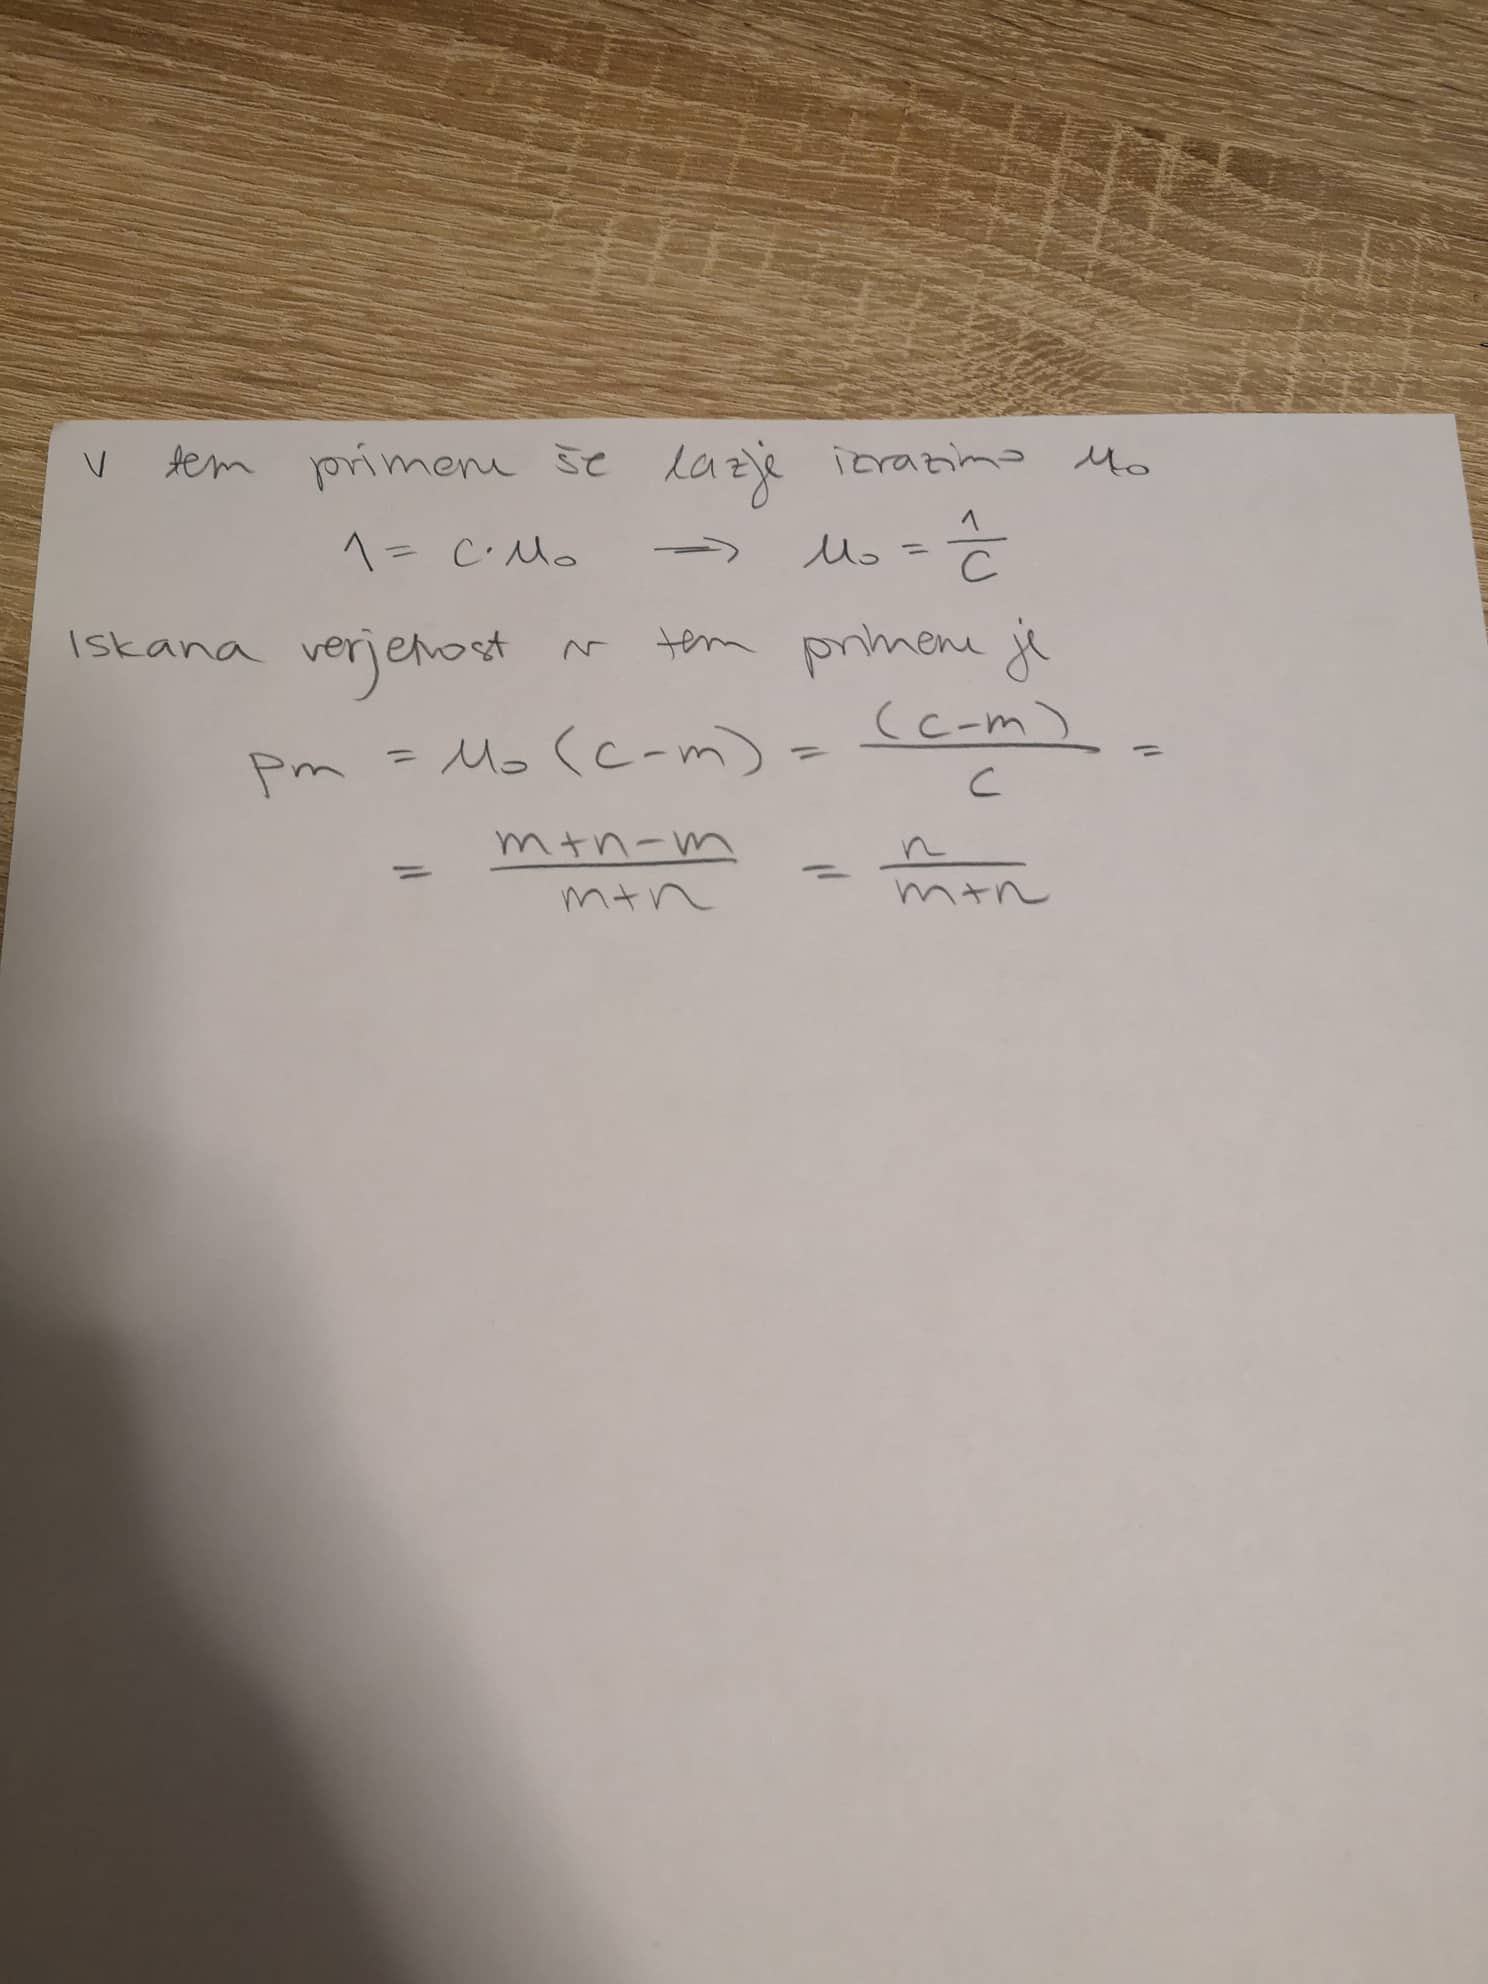 V tem primeru še lažje izrazimo µ₀
1 = c·µ₀ → µ₀ = 1/c
Iskana verjetnost v tem primeru je
pm = µ₀ (c-m) = (c-m)/c =
= m+n-m/m+n = n/m+n